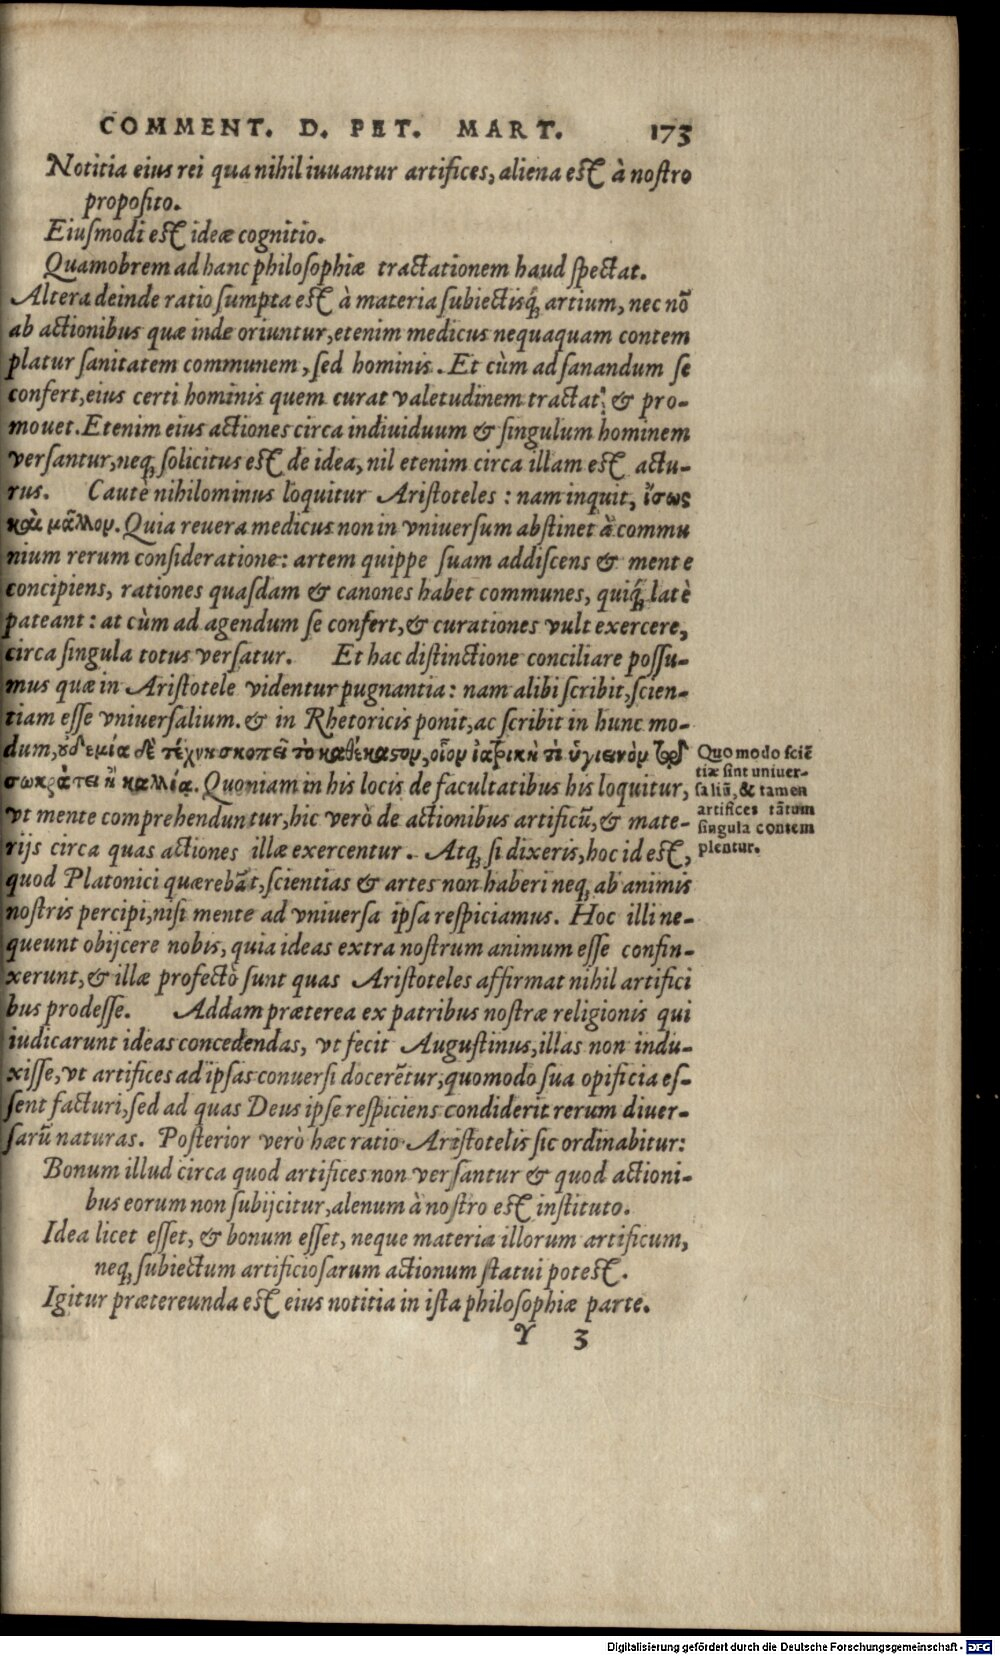 COMMENT. D. PET. MART. 173
Notitia eius rei qua nihil iuuantur artifices, aliena est à nostro
proposito.
Eiusmodi est ideæ cognitio.
Quamobrem ad hanc philosophiæ tractationem haud spectat.
Altera deinde ratio sumpta est à materia subiectisq́; artium, nec nō
ab actionibus quæ inde oriuntur, etenim medicus nequaquam contem
platur sanitatem communem, sed hominis. Et cùm ad sanandum se
confert, eius certi hominis quem curat valetudinem tractat, & pro-
mouet. Etenim eius actiones circa indiuiduum & singulum hominem
versantur, neq; solicitus est de idea, nil etenim circa illam est actu-
rus. Cautè nihilominus loquitur Aristoteles: nam inquit, ἴσως
καὶ μᾶλλον. Quia reuera medicus non in vniuersum abstinet à commu
nium rerum consideratione: artem quippe suam addiscens & mente
concipiens, rationes quasdam & canones habet communes, quiq́; latè
pateant: at cùm ad agendum se confert, & curationes vult exercere,
circa singula totus versatur. Et hac distinctione conciliare possu-
mus quæ in Aristotele videntur pugnantia: nam alibi scribit, scien-
tiam esse vniuersalium. & in Rhetoricis ponit, ac scribit in hunc mo-
dum, οὐδεμία δὲ τέχνη σκοπεῖ τὸ καθέκαστον, οἷον ἰατρικὴ τί ὑγιεινὸν τῷ
σωκράτει ἢ καλλίᾳ. Quoniam in his locis de facultatibus his loquitur,
vt mente comprehenduntur, hic verò de actionibus artificū, & mate-
rijs circa quas actiones illæ exercentur. Atq; si dixeris, hoc id est,
quod Platonici quærebāt, scientias & artes non haberi neq; ab animis
nostris percipi, nisi mente ad vniuersa ipsa respiciamus. Hoc illi ne-
queunt obijcere nobis, quia ideas extra nostrum animum esse confin-
xerunt, & illæ profectò sunt quas Aristoteles affirmat nihil artifici
bus prodesse. Addam præterea ex patribus nostræ religionis qui
iudicarunt ideas concedendas, vt fecit Augustinus, illas non indu-
xisse, vt artifices ad ipsas conuersi docerētur, quomodo sua opificia es-
sent facturi, sed ad quas Deus ipse respiciens condiderit rerum diuer-
sarū naturas. Posterior verò hæc ratio Aristotelis sic ordinabitur:
Bonum illud circa quod artifices non versantur & quod actioni-
bus eorum non subijcitur, alenum à nostro est instituto.
Idea licet esset, & bonum esset, neque materia illorum artificum,
neq; subiectum artificiosarum actionum statui potest.
Igitur prætereunda est eius notitia in ista philosophiæ parte.
Y 3
Quomodo sciē
tiæ sint uniuer-
saliū, & tamen
artifices tātum
singula contem
plentur.
Digitalisierung gefördert durch die Deutsche Forschungsgemeinschaft - DFG